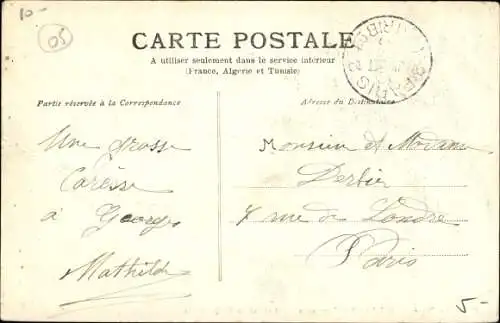 10-
05
CARTE POSTALE
A utiliser seulement dans le service intérieur
(France, Algerie et Tunisie)
Partie réservée à la Correspondance
Adresse du Destinataire
Une grosse
Caresse
à Georges
Mathilde
Monsieur et Madame
rue de Londre
Paris
5-